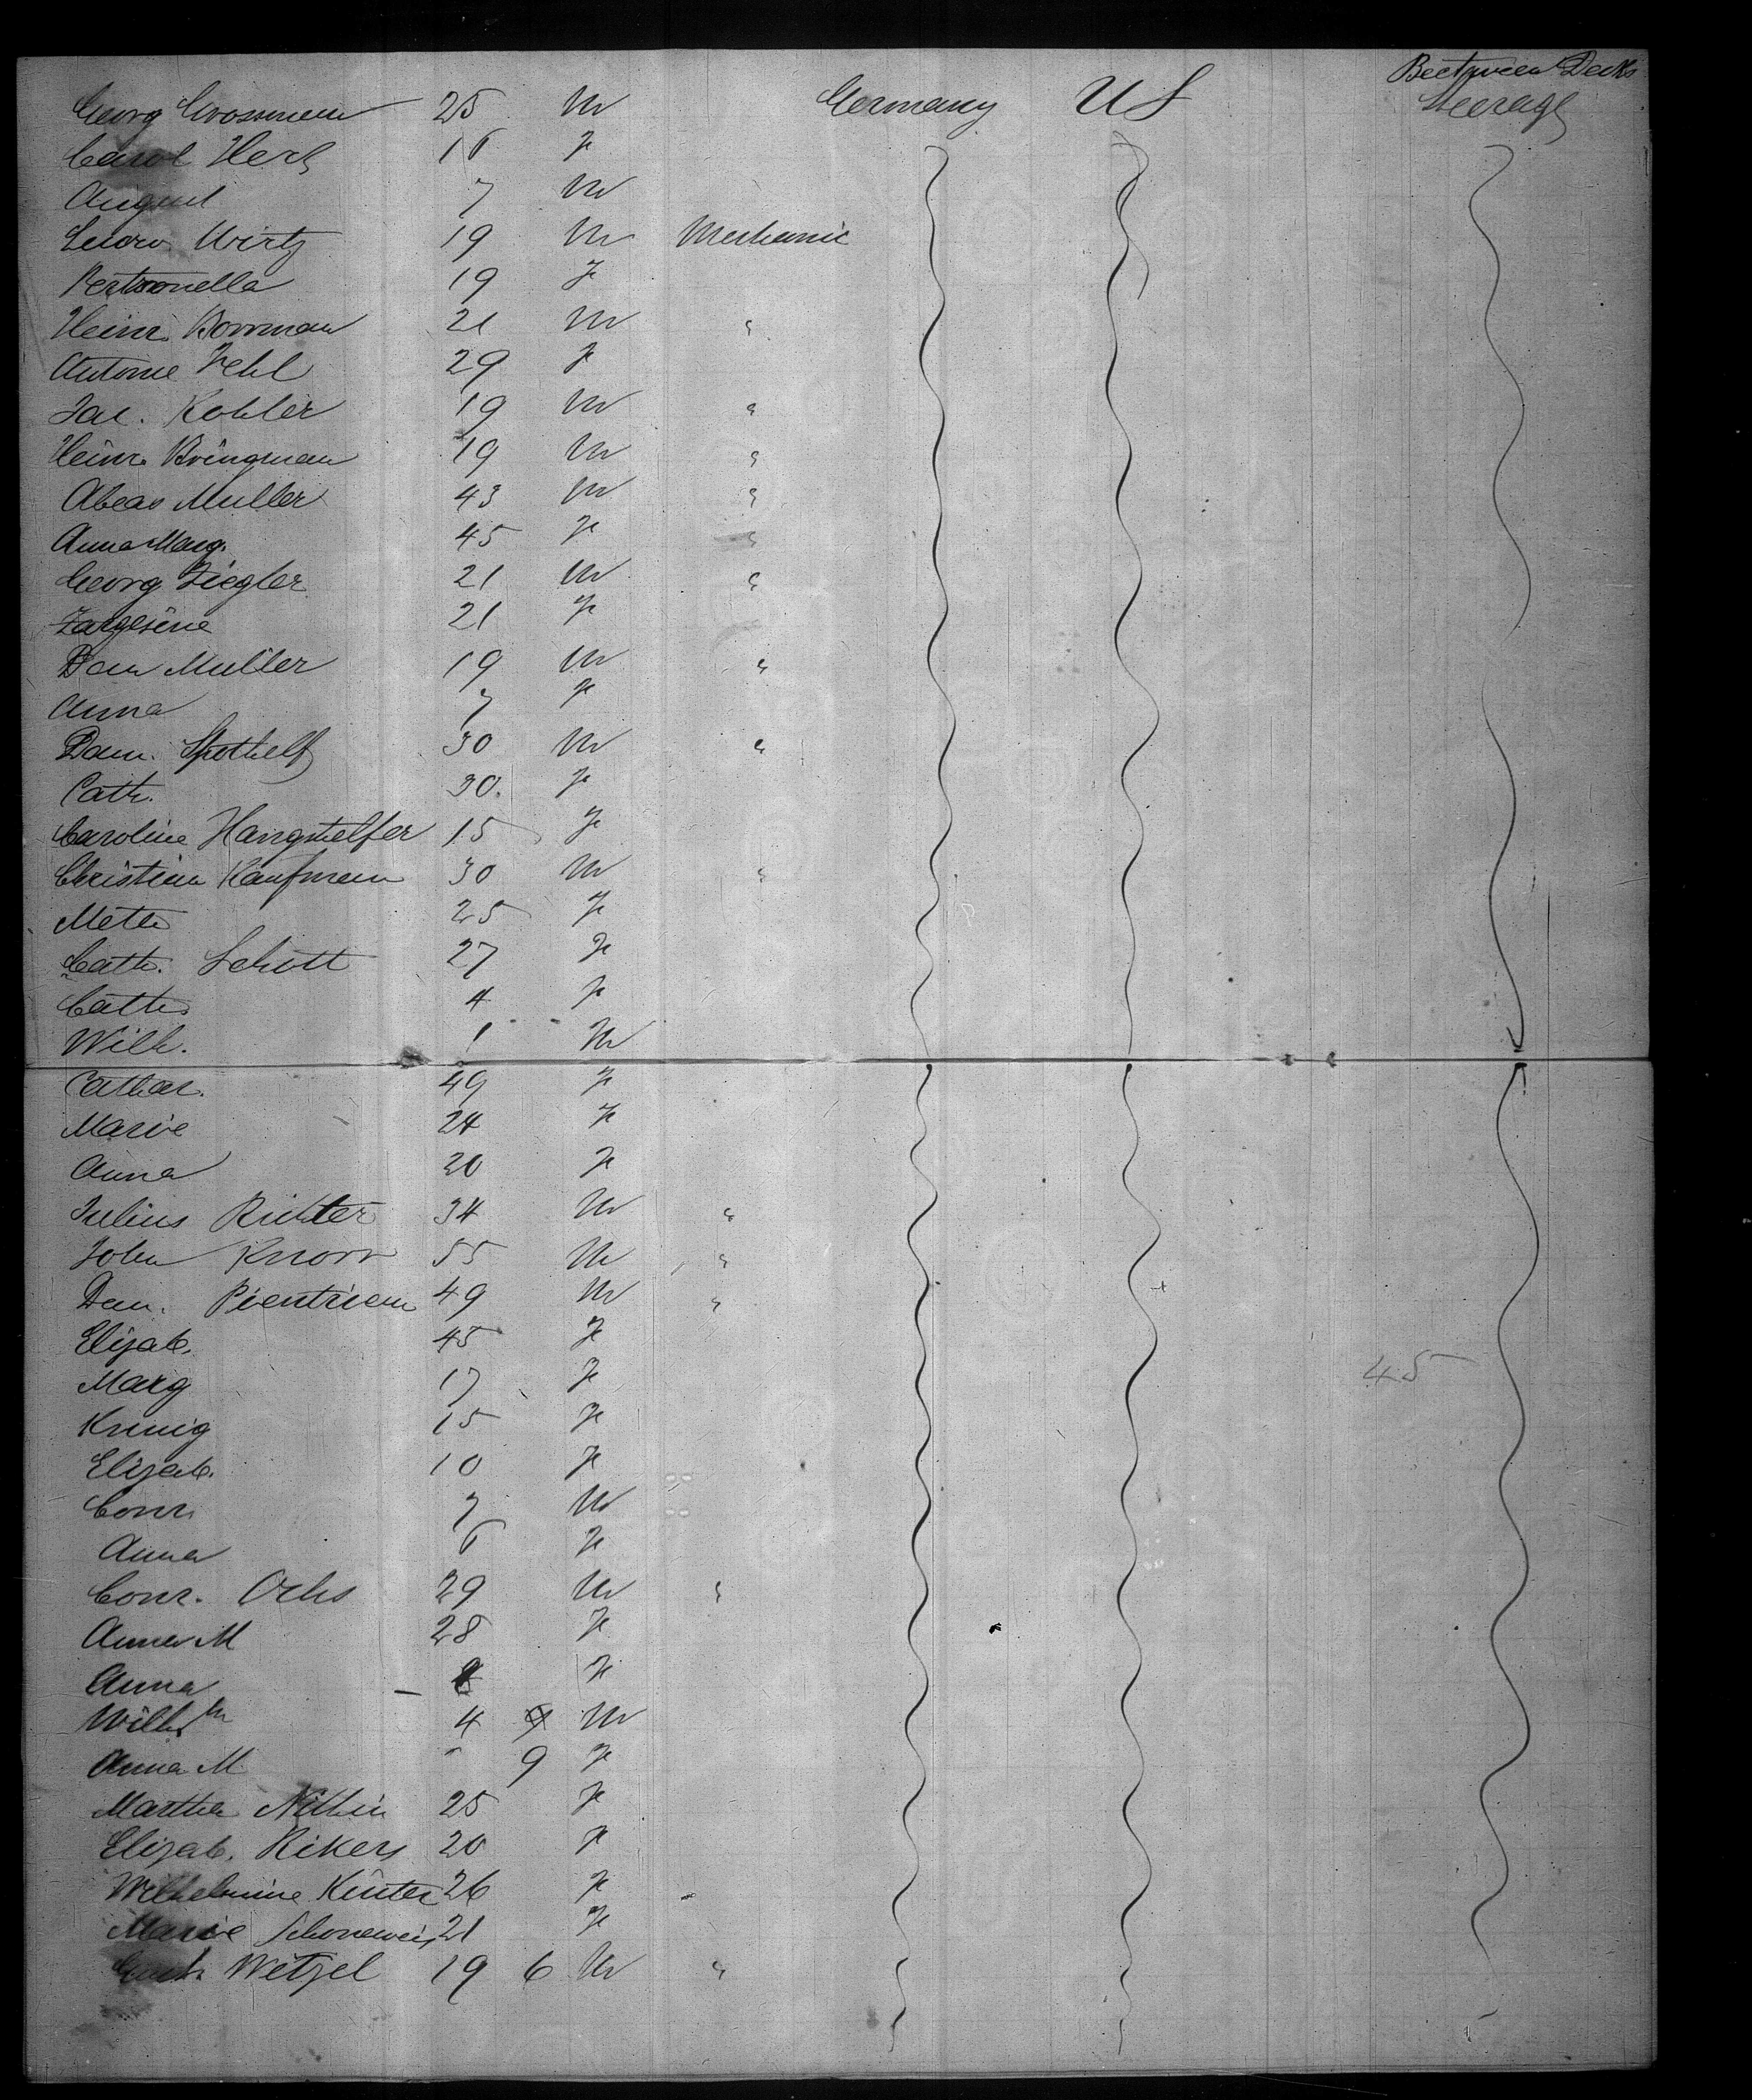 Beetween Decks
Georg Grossmann 25 M Germany US Steerage
Carol Herb 16 F
August 7 M
Wirtz 19 M Mechanic
Pertronella 19 F
Heinr. Borrman 21 M "
Antonie Fehl 29 F
Jac. Kohler 19 M "
Heinr. Bringman 19 M "
Muller 43 M "
Anna Marg. 45 F "
Georg Ziegler 21 M "
21 F
Dan Muller 19 M "
Anna 7 F
Dan. 30 M "
Cath. 30. F
Caroline Hangstelfer 15 F
Christian Kaufmann 30 M "
Meta 25 F
Cath. Schott 27 F
Cath. 4 F
Wilh. 1 M
Cathar. 49 F
Marie 24 F
Anna 20 F
Julius Richter 34 M "
John Knorr 55 M "
Dan. 49 M "
Elisab. 45 F
Marg 17 F
15 F
Elisab. 10 F
Conr. 7 M
Anna 6 F
Conr. Ochs 29 M "
Anna M 28 F
Anna F
Wilhm 4 M
Anna M 9 F
45
Martha 25 F
Elisab. Rikers 20 F
Wilhelmine 26 F
Marie Schoneweis 21 F
Wetzel 19 6 M "